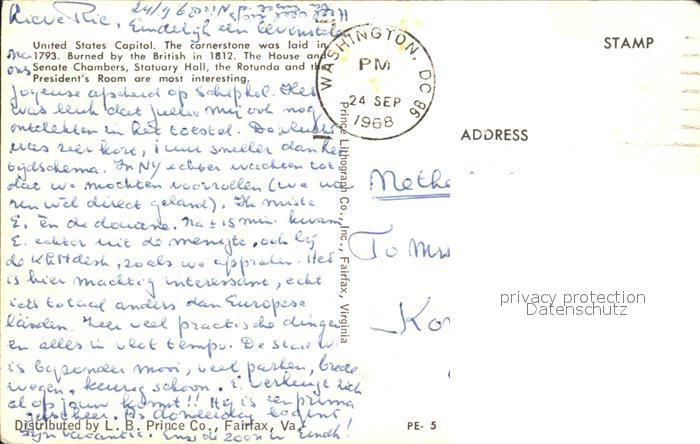 Heel veel liefs
24/9
Lieve Rie, Eindelijk een levensteken
United States Capitol. The cornerstone was laid in
na
1793. Burned by the British in 1812. The House and
ons
Senate Chambers, Statuary Hall, the Rotunda and the
President's Room are most interesting.
joyeuse afscheid op Schiphol. Het
was leuk dat jullie mij ook nog
ontdekten in het toestel. De vlucht
was zeer kort, 1 uur sneller dan het
tijdschema. In NY echter wachten tot
dat we mochten voorrollen (we wa-
ren wel direct geland). Ik miste
E. en de douane. Na ± 15 min. kwam
E. echter uit de menigte, ook bij
de KLM desk, zoals we afspraken. Het
is hier machtig interessant, echt
iets totaal anders dan Europese
landen. Zeer veel practische dingen
en alles in vlot tempo. De stad W.
is bijzonder mooi, veel parken, brede
wegen, keurig schoon. E. verheugt zich
al op jouw komst!! Hij is een prima
chauffeur. As donderdag begint
Distributed by L. B. Prince Co., Fairfax, Va.
zijn vacantie. Ens de zoon in Eindh!
PE- 5
Prince Lithograph Co., Inc., Fairfax, Virginia
WASHINGTON, DC
PM
24 SEP
1968
STAMP
ADDRESS
Nethe
To Mrs
Kon
privacy protection
Datenschutz